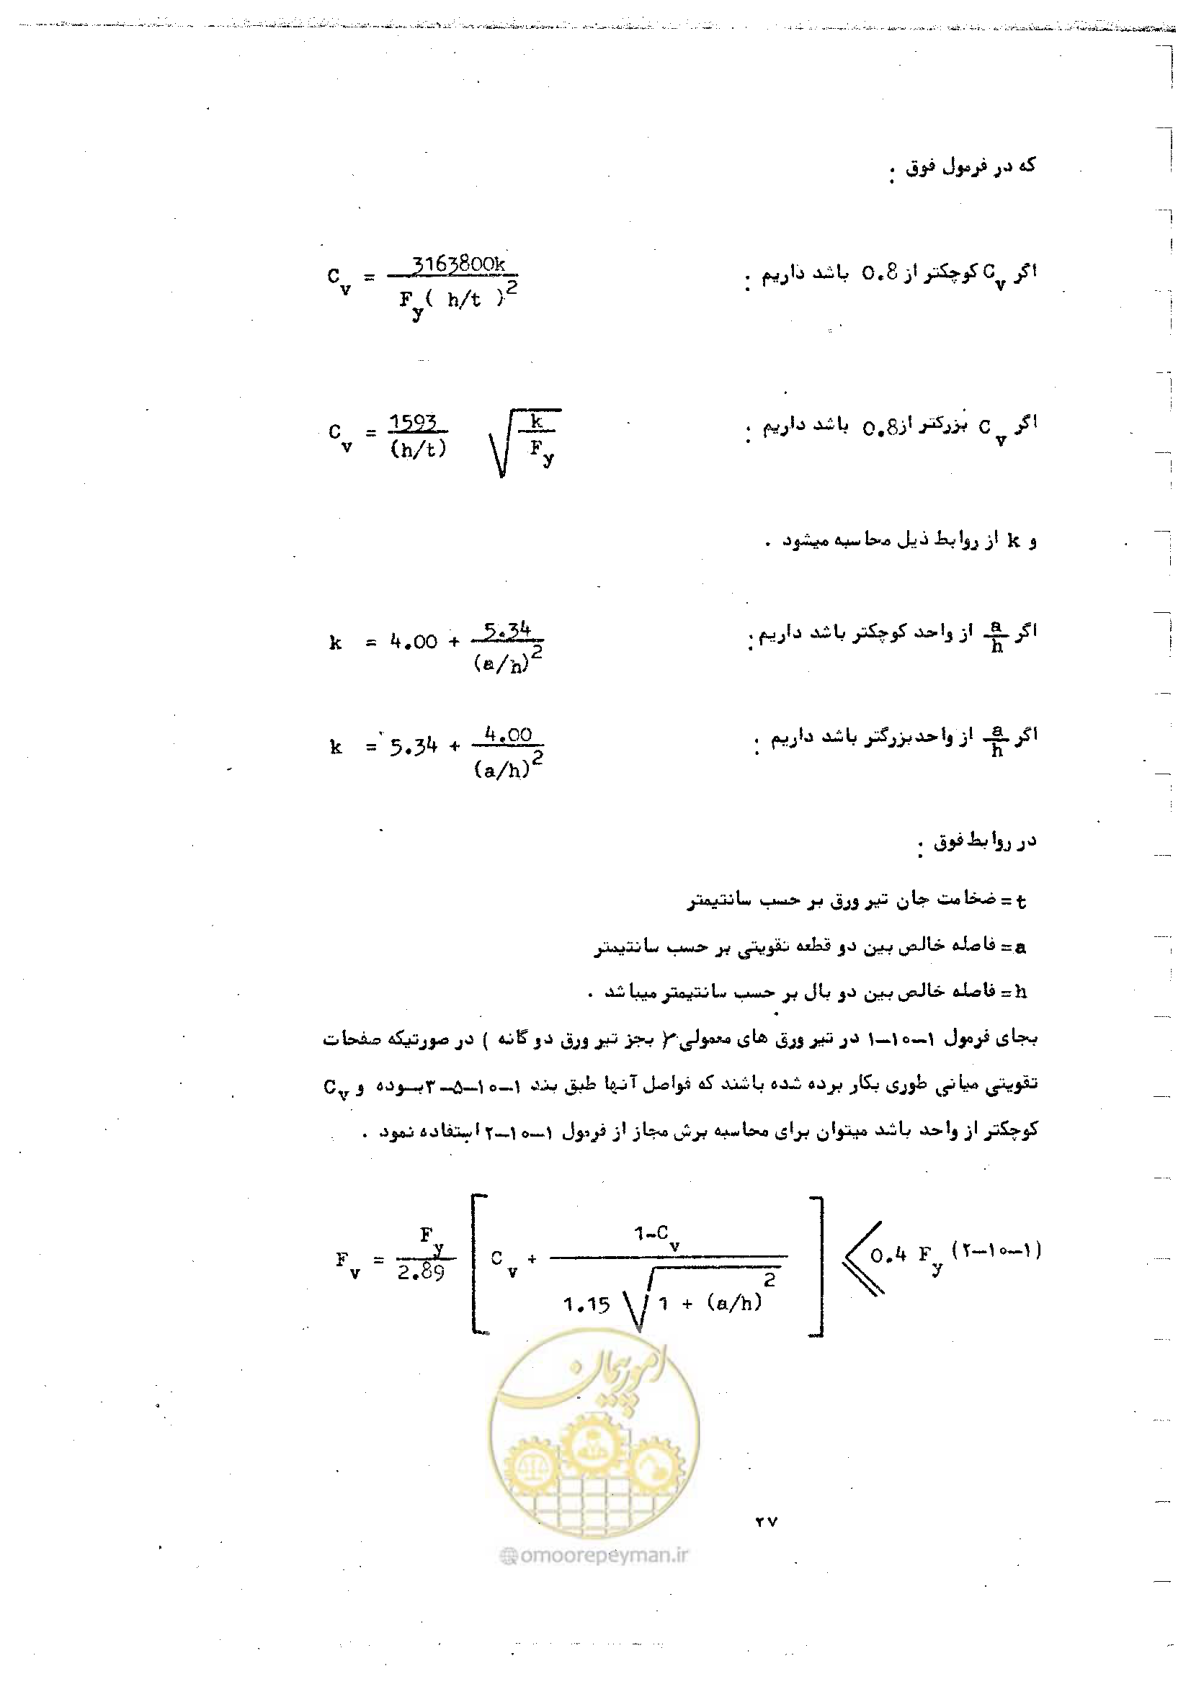 که در فرمول فوق :
اگر Cv کوچکتر از 0.8 باشد داریم : Cv = 3163800k / Fy( h/t )²
اگر Cv بزرکتر از 0.8 باشد داریم : Cv = 1593 / (h/t) √(k / Fy)
و k از روابط ذیل محاسبه میشود .
اگر a/h از واحد کوچکتر باشد داریم : k = 4.00 + 5.34 / (a/h)²
اگر a/h از واحدبزرگتر باشد داریم : k = 5.34 + 4.00 / (a/h)²
در روابط فوق :
t = ضخامت جان تیر ورق بر حسب سانتیمتر
a = فاصله خالص بین دو قطعه تقویتی بر حسب سانتیمتر
h = فاصله خالص بین دو بال بر حسب سانتیمتر میباشد .
بجای فرمول ۱-۱۰-۱ در تیر ورق های معمولی ( بجز تیر ورق دو گانه ) در صورتیکه صفحات
تقویتی میانی طوری بکار برده شده باشند که فواصل آنها طبق بند ۱-۱۰-۵-۳ بوده و Cv
کوچکتر از واحد باشد میتوان برای محاسبه برش مجاز از فرمول ۱-۱۰-۲ استفاده نمود .
Fv = Fy / 2.89 [ Cv + 1-Cv / 1.15 √(1 + (a/h)²) ] ≤ 0.4 Fy (۱-۱۰-۲)
امور پیمان
۲۷
@omoorepeyman.ir